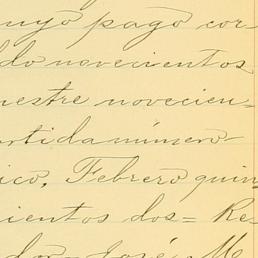 uyo pago cor-
do novecientos
mestre novecien-
artida número-
ico, Febrero quin
cientos dos= Re-
dor- José M.